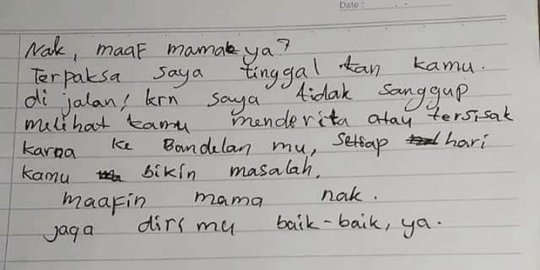 Date :
Nak, maaf mamak ya?
Terpaksa saya tinggal kan kamu.
di jalan, krn saya tidak sanggup
melihat kamu menderita atau tersisak
karna ke Bandelan mu, setiap hari
kamu bikin masalah.
maafin mama nak.
jaga diri mu baik-baik, ya.